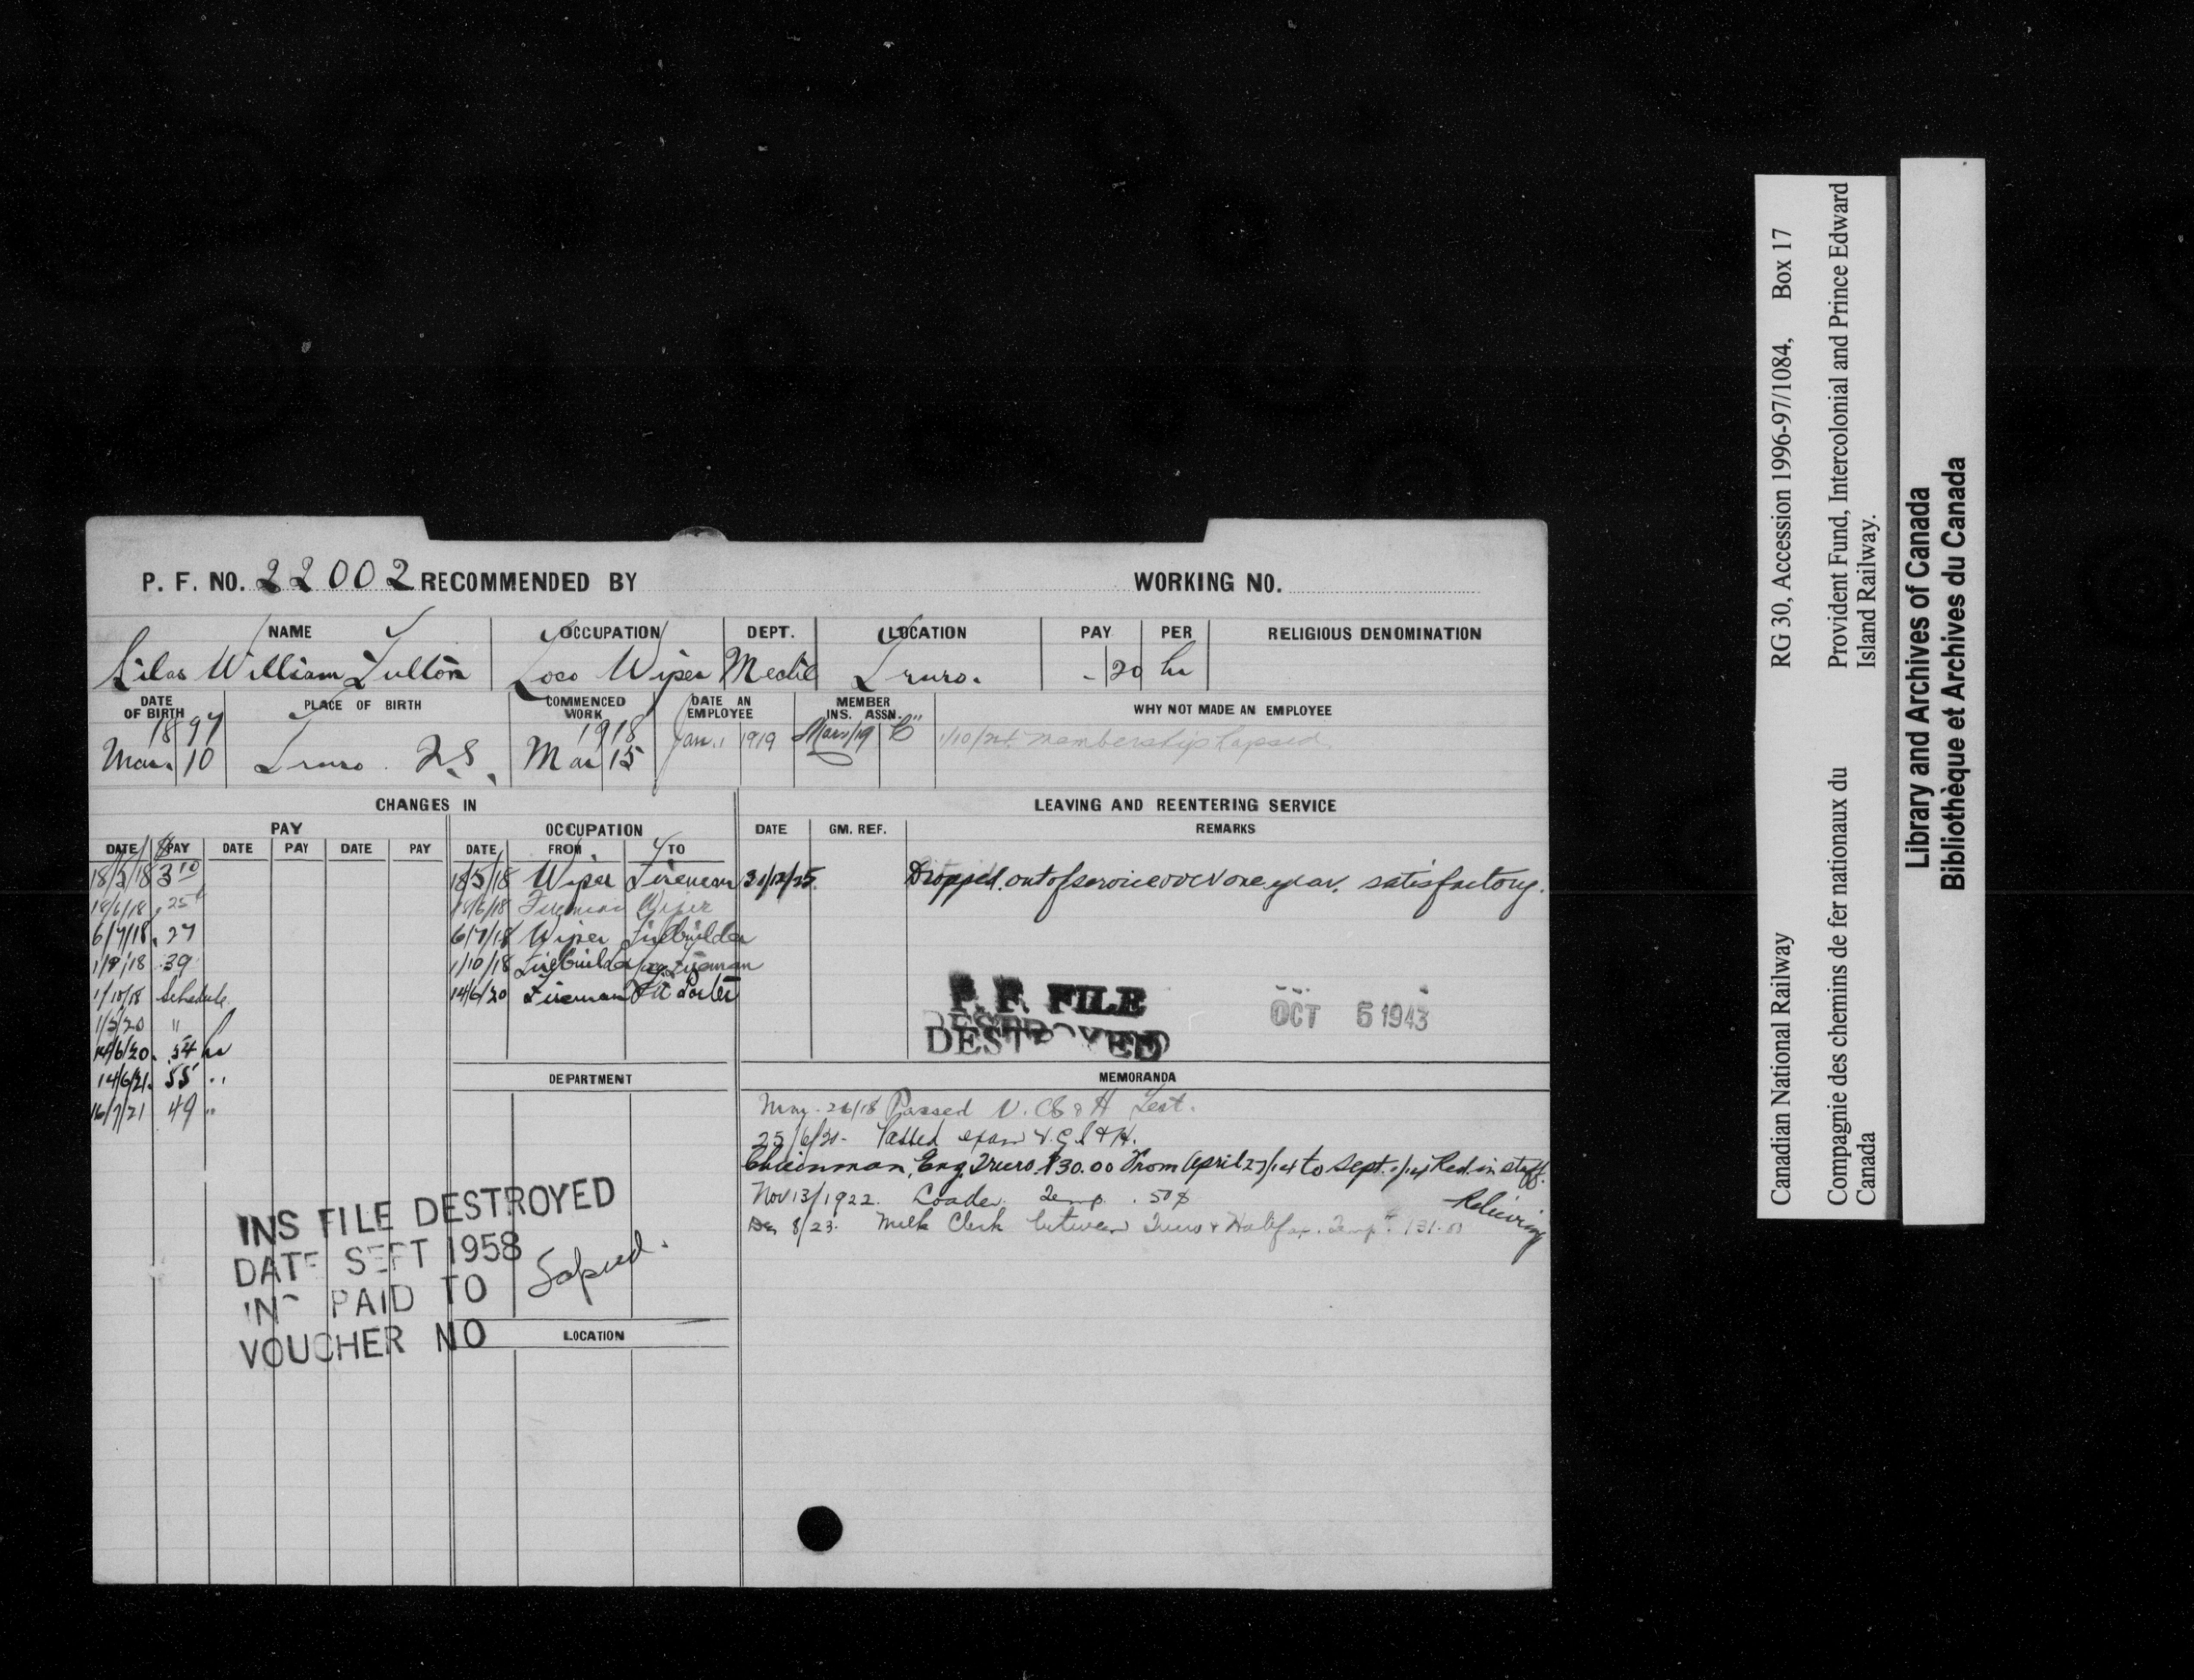 P. F. NO. 22002 RECOMMENDED BY WORKING NO.
NAME OCCUPATION DEPT. LOCATION PAY PER RELIGIOUS DENOMINATION
Silas William Fulton Loco Wiper Mechl Truro. - 20 hr
DATE OF BIRTH PLACE OF BIRTH COMMENCED WORK DATE AN EMPLOYEE MEMBER INS. ASSN. WHY NOT MADE AN EMPLOYEE
1897 1918 Jan. 1 1919 Mar/19 "C" 1/10/24 membership lapsed
Mar. 10 Truro N.S. Mar 15
CHANGES IN LEAVING AND REENTERING SERVICE
PAY OCCUPATION DATE GM. REF. REMARKS
DATE PAY DATE PAY DATE PAY DATE FROM TO
18/5/18 3 10 18/5/18 Wiper Fireman 31/12/25 Dropped out of service over one year. satisfactory.
18/6/18 .25 18/6/18 Fireman Wiper
6/7/18 .27 6/7/18 Wiper Firebuilder
1/8/18 .39 1/10/18 Firebuilder Fireman
1/10/18 Schedule 14/6/20 Fireman Porter
1/5/20 "
14/6/20 .54 hr
14/6/21 .55 "
16/7/21 49 "
P. F. FILE
DESTROYED
OCT 5 1943
DEPARTMENT MEMORANDA
May 26/18 Passed V. CB & H Test.
25/6/20 - Passed exam V. C & H.
Chainman, Eng. Truro \$30.00 From April 27/14 to Sept. 1/14 Red. in staff.
Nov 13/1922. Loader Temp. .50¢
Dec 8/23. Milk Clerk between Truro & Halifax. Temp. 131.00 Relieving
INS FILE DESTROYED
DATE SEPT 1958
INS PAID TO Lapsed.
VOUCHER NO
LOCATION
Canadian National Railway RG 30, Accession 1996-97/1084, Box 17
Compagnie des chemins de fer nationaux du Canada Provident Fund, Intercolonial and Prince Edward Island Railway.
Library and Archives of Canada
Bibliothèque et Archives du Canada